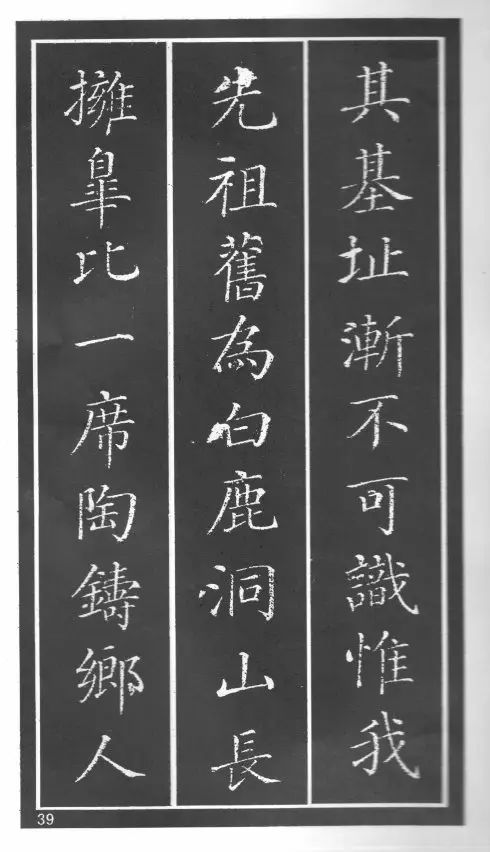 其基址漸不可識惟我
先祖舊為白鹿洞山長
擁皐比一席陶鑄鄉人
39